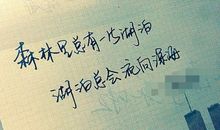 森林里总有一片湖泊
湖泊总会流向深海